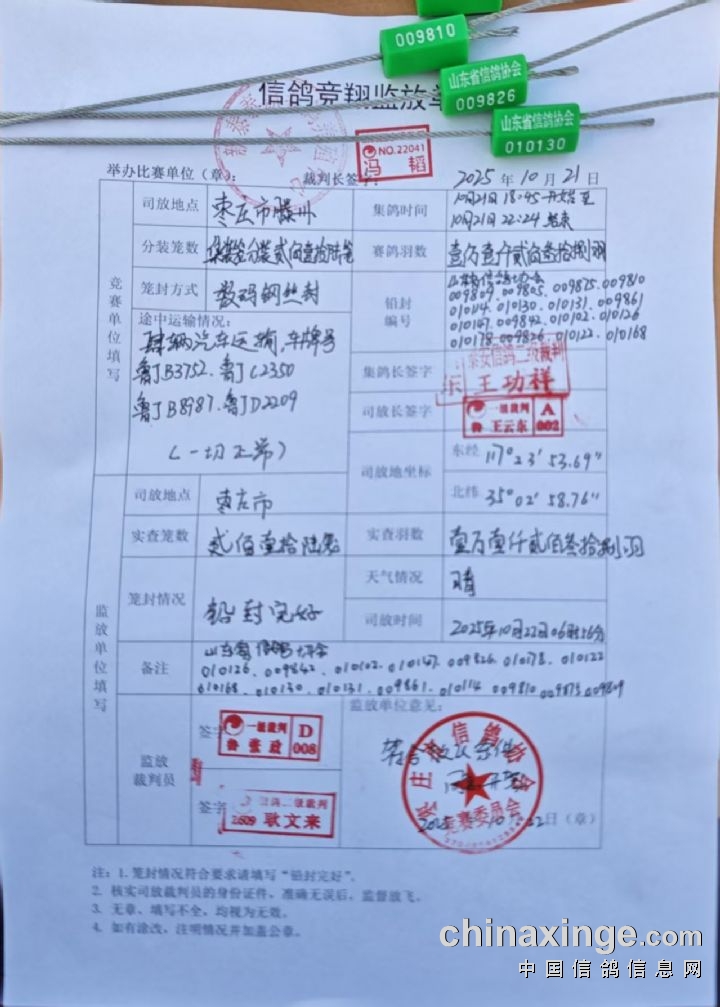 009810
山东省信鸽协会
009826
山东省信鸽协会
010130
信鸽竞翔监放单
NO.22041
冯 韬
举办比赛单位（章）： 裁判长签字： 2025 年 10 月 21 日
竞赛单位填写
司放地点 枣庄市滕州 集鸽时间 10月21日 18:45 开始至
10月21日 22:24 结束
分装笼数 集装箱分装贰佰壹拾陆笼 赛鸽羽数 壹万壹仟贰佰叁拾捌羽
笼封方式 数码钢丝封 铅封编号 山东省信鸽协会
009809. 009805. 009875. 009810
010114. 010130. 010131. 009861
010147. 009842. 010102. 010126
010178. 009826. 010122. 010168
途中运输情况：
肆辆汽车运输，车牌号
鲁J B3752. 鲁J C2350
鲁J B8987. 鲁J D2209
（一切正常）
集鸽长签字 泰安信鸽二级裁判
东 王功祥
司放长签字 一级裁判 A
鲁 王云东 002
司放地坐标 东经 117° 23′ 53.69″
北纬 35° 02′ 58.76″
监放单位填写
司放地点 枣庄市
实查笼数 贰佰壹拾陆笼 实查羽数 壹万壹仟贰佰叁拾捌羽
笼封情况 铅封完好 天气情况 晴
司放时间 2025年10月22日06时56分
备注 山东省信鸽协会
010126. 009842. 010102. 010147. 009826. 010178. 010122
010168. 010130. 010131. 009861. 010114 009810 009875 009809
监放裁判员
签字 一级裁判 D
鲁 张政 008
签字 二级裁判
2609 耿文来
监放单位意见：
符合放飞条件
同意开笼
枣庄市信鸽协会
竞赛委员会
2025 10 22日（章）
注：1. 笼封情况符合要求请填写“铅封完好”。
2. 核实司放裁判员的身份证件，准确无误后，监督放飞。
3. 无章、填写不全，均视为无效。
4. 如有涂改，注明情况并加盖公章。
chinaxinge.com
中国信鸽信息网